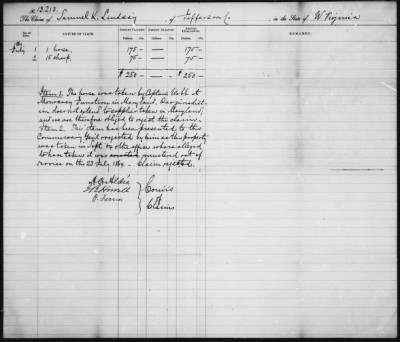 The Claim of Samuel K. Lindsay, of Jefferson Co, in the State of W Virginia
NATURE OF CLAIM. AMOUNT CLAIMED. AMOUNT ALLOWED. AMOUNT DISALLOWED. REMARKS.
Dollars. Cts. Dollars. Cts. Dollars. Cts.
July 1 1 horse, 175 — — 175 —
2 15 sheep, 75 — — 75 —
$ 250 — — $ 250 —
Item 1. The horse was taken by Captain Webb at
Monocacy Junction in Maryland. Our jurisdict-
ion does not extend to supplies taken in Maryland,
and we are therefore obliged to reject the claim.
Item 2. This item has been presented to this
Commissary Genl & rejected by him as the property
was taken in Sept. by the officer who is alleged
to have taken it was mustered out of
service on the 23 July 1864 - Claim rejected.
A.O. Aldis
J.B. Howell
O. Ferriss
Comrs
of
Claims